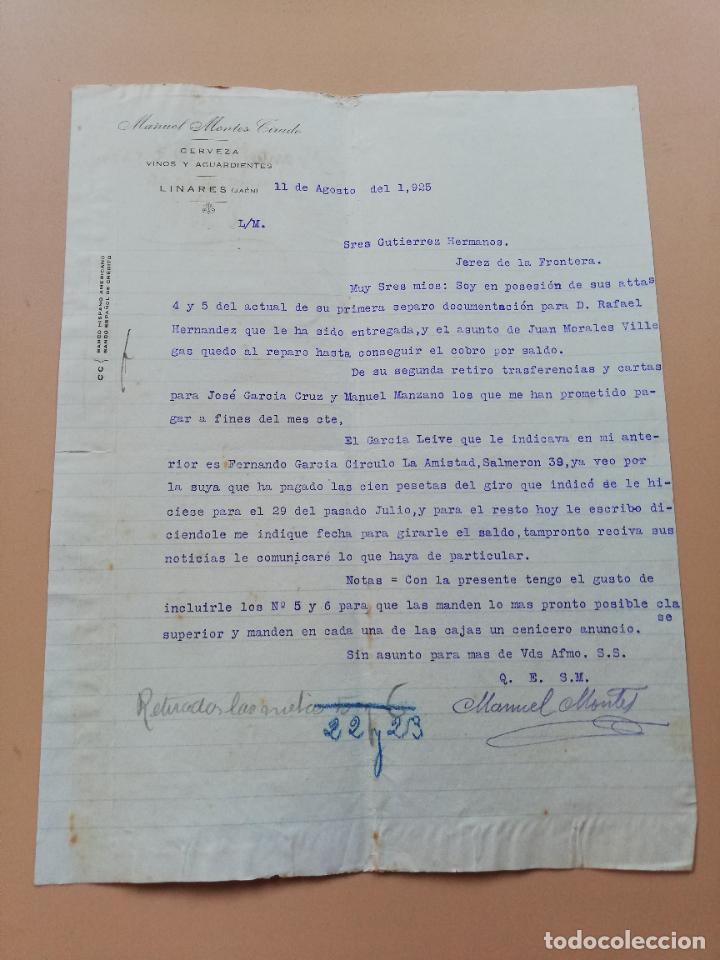 Manuel Montes Cirado
CERVEZA
VINOS Y AGUARDIENTES
LINARES (JAÉN)
11 de Agosto del 1,925
L/M.
CC { BANCO HISPANO AMERICANO
BANCO ESPAÑOL DE CRÉDITO
Sres Gutierrez Hermanos.
Jerez de la Frontera.
Muy Sres mios: Soy en posesión de sus attas
4 y 5 del actual de su primera separo documentación para D. Rafael
Hernandez que le ha sido entregada,y el asunto de Juan Morales Ville
gas quedo al reparo hasta conseguir el cobro por saldo.
De su segunda retiro trasferencias y cartas
para José Garcia Cruz y Manuel Manzano los que me han prometido pa-
gar a fines del mes cte,
El Garcia Leive que le indicava en mi ante-
rior es Fernando Garcia Circulo La Amistad,Salmeron 39,ya veo por
la suya que ha pagado las cien pesetas del giro que indicó se le hi-
ciese para el 29 del pasado Julio,y para el resto hoy le escribo di-
ciendole me indique fecha para girarle el saldo,tampronto reciva sus
noticias le comunicaré lo que haya de particular.
Notas = Con la presente tengo el gusto de
incluirle los Nº 5 y 6 para que las manden lo mas pronto posible cla
se
superior y manden en cada una de las cajas un cenicero anuncio.
Sin asunto para mas de Vds Afmo. S.S.
Q. E. S.M.
Retiradas las
22 y 23
Manuel Montes
todocoleccion
todocoleccion.net